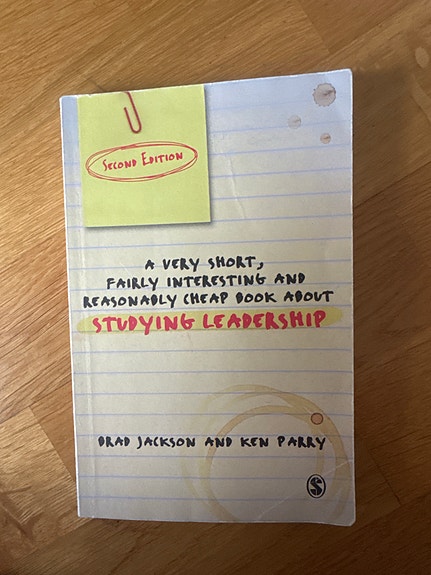 SECOND EDITION
A VERY SHORT,
FAIRLY INTERESTING AND
REASONABLY CHEAP BOOK ABOUT
STUDYING LEADERSHIP
BRAD JACKSON AND KEN PARRY
S